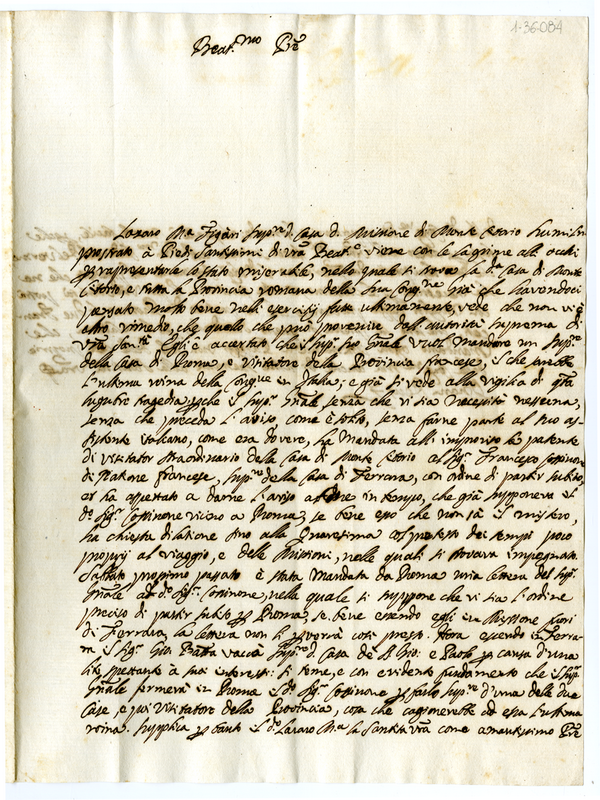 1-36-084
Beat.mo Pre
Lazaro M.a Figari Sup.re d. Casa d. Missione di Monte Citorio humilm.
prostrato à Piedi Santissimi di Vra Beat.e viene con le lagrime all. occhi
p rapresentarle lo stato miserabile, nello quale si trova la d.a Casa di Monte
Citorio, e tutta la Provincia romana della sua Cong.ne già che havendoci
pensato molto bene nelli esercisij fatti ultimamente, vede che non vi è
altro rimedio, che quello che può provenire dall'autorità suprema di
Vra San.tà Egli è accertato che il Sup. suo Gnale vuol mandare un Sup.re
della Casa di Roma, e visitatore della Provincia francese, il che sarebbe
l'ultima roina della Cong.ne in Italia; e già si vede alla vigilia di qta
lugubre tragedia, pche il Sup. Gnale senza che vi sia necessità nessuna,
senza che preceda l'aviso, come è solito, senza farne parte al suo as-
sistente Italiano, come era dovere, ha mandata all' improviso la patente
di visitator straordinario della Casa di Monte Citorio al Sig. Francesco Cossinone
di natione francese, Sup.re della Casa di Ferrara, con ordine di partir subito,
et ha aspettato a darne l'aviso in tempo, che già supponeva il
d.o Sig. Cossinone vicino a Roma; se bene esso che non sà il mistero,
ha chiesta dilatione sino alla Quaresima col pretesto dei tempi poco
proprij al viaggio, e delle Missioni, nelle quali si trovava impegnato.
Sabbato prossimo passato è stata mandata da Roma una lettera del Sup.
Gnale al d.o Sig. Cossinone, nella quale si suppone che vi sia l'ordine
preciso di partir subito p Roma, se bene essendo egli in Missione fuori
di Ferrara, la lettera non li perverrà così presto. Hora essendo in Ferra-
ra il Sig. Gio. Batta Vacca Sup.re d. Casa de SS. Gio: e Paolo p causa d'una
lite spettante à suoi interessi: si teme, e con evidente fundamento che il Sup.
Gnale fermerà in Roma il d.o Sig. Cossinone p farlo Sup.re d'una delle due
Case, e poi Visitatore della Provincia, cosa che cagionerebbe ad essa l'ultima
roina. Supplica p tanto il d.o Lazaro M.a la Santità Vra come amantissimo Pre